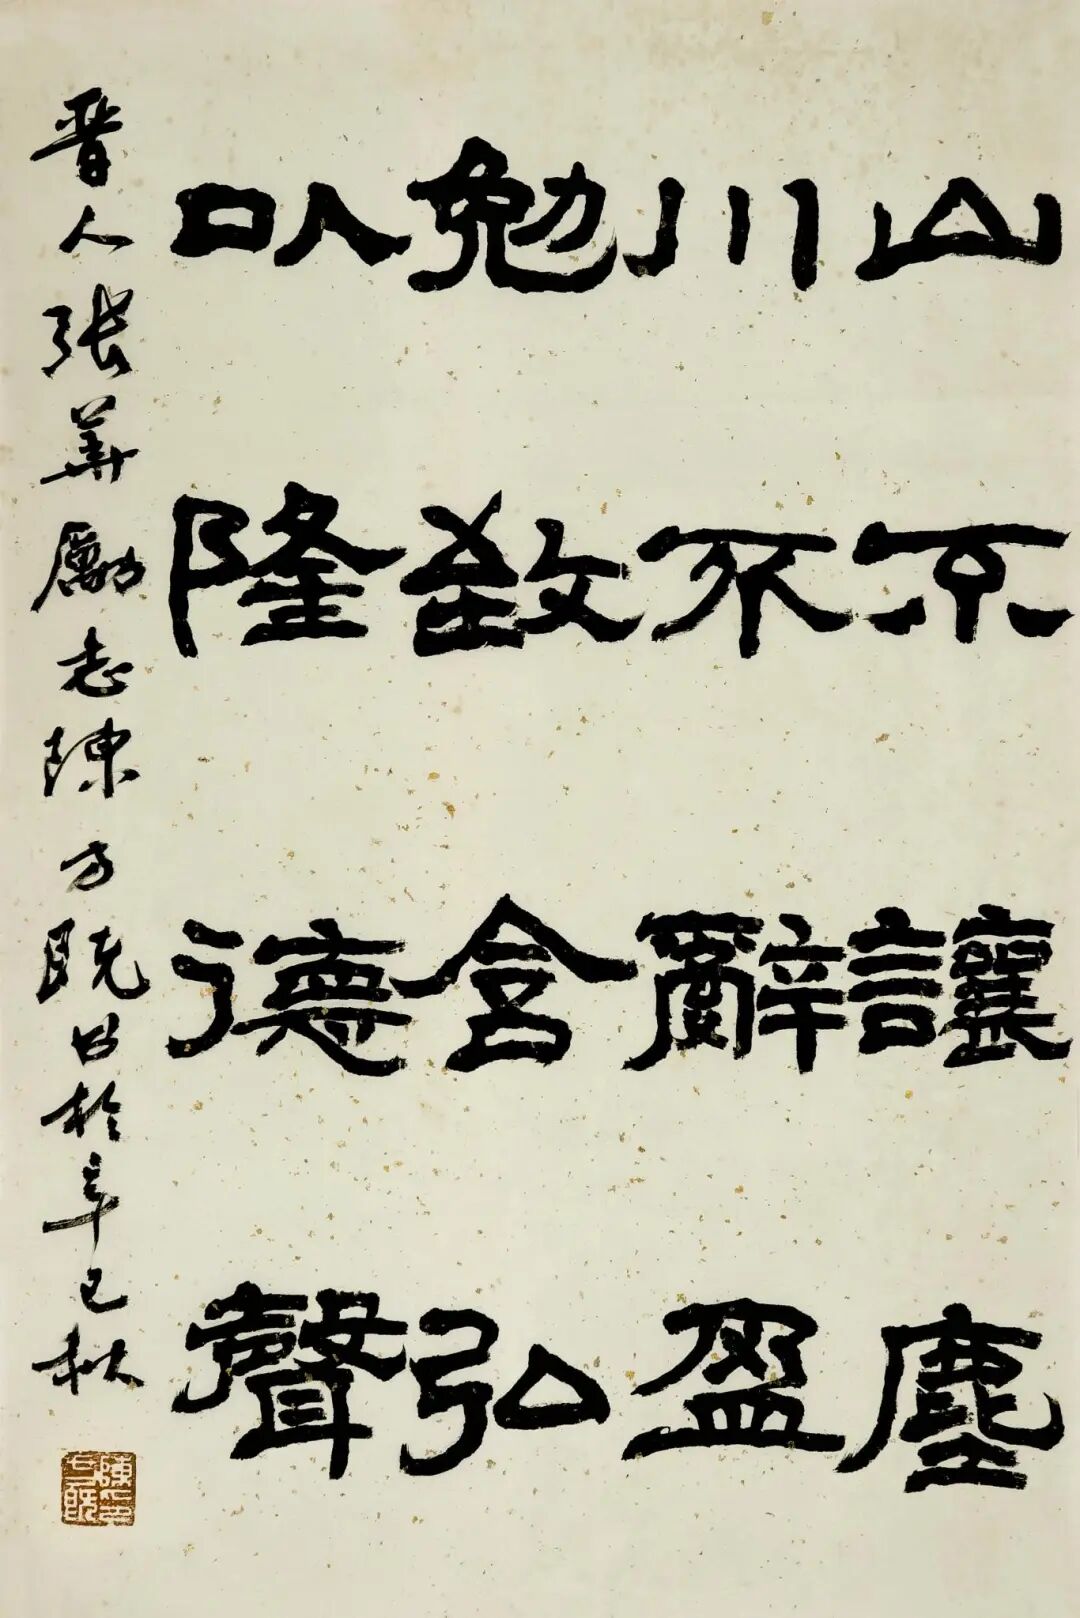 山不讓塵
川不辭盈
勉致含弘
以隆德聲
晉人張華勵志陳方既書於辛巳秋
陳印方既